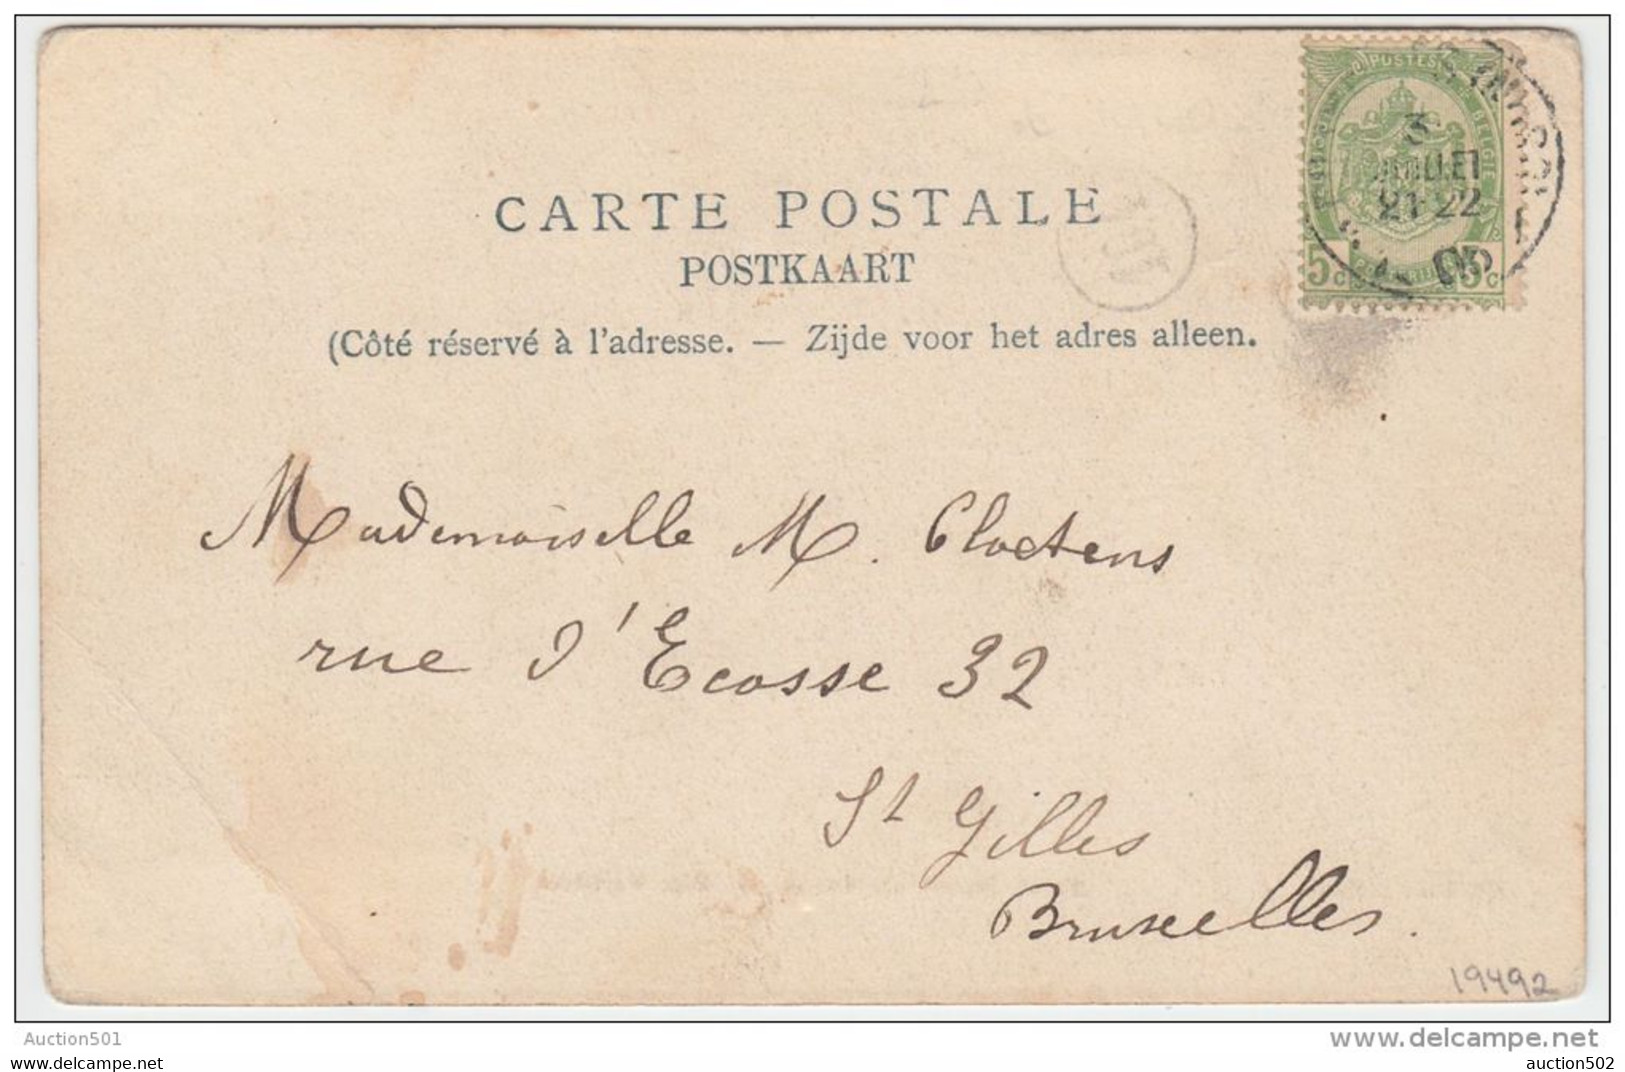 CARTE POSTALE
POSTKAART
(Côté réservé à l'adresse. — Zijde voor het adres alleen.
POSTES
BELGIE
3
JUILLET
21-22
05
5c
5c
Mademoiselle M. Cloetens
rue d'Ecosse 32
St Gilles
Bruxelles.
19492
Auction501
delcampe.net
auction501
auction502